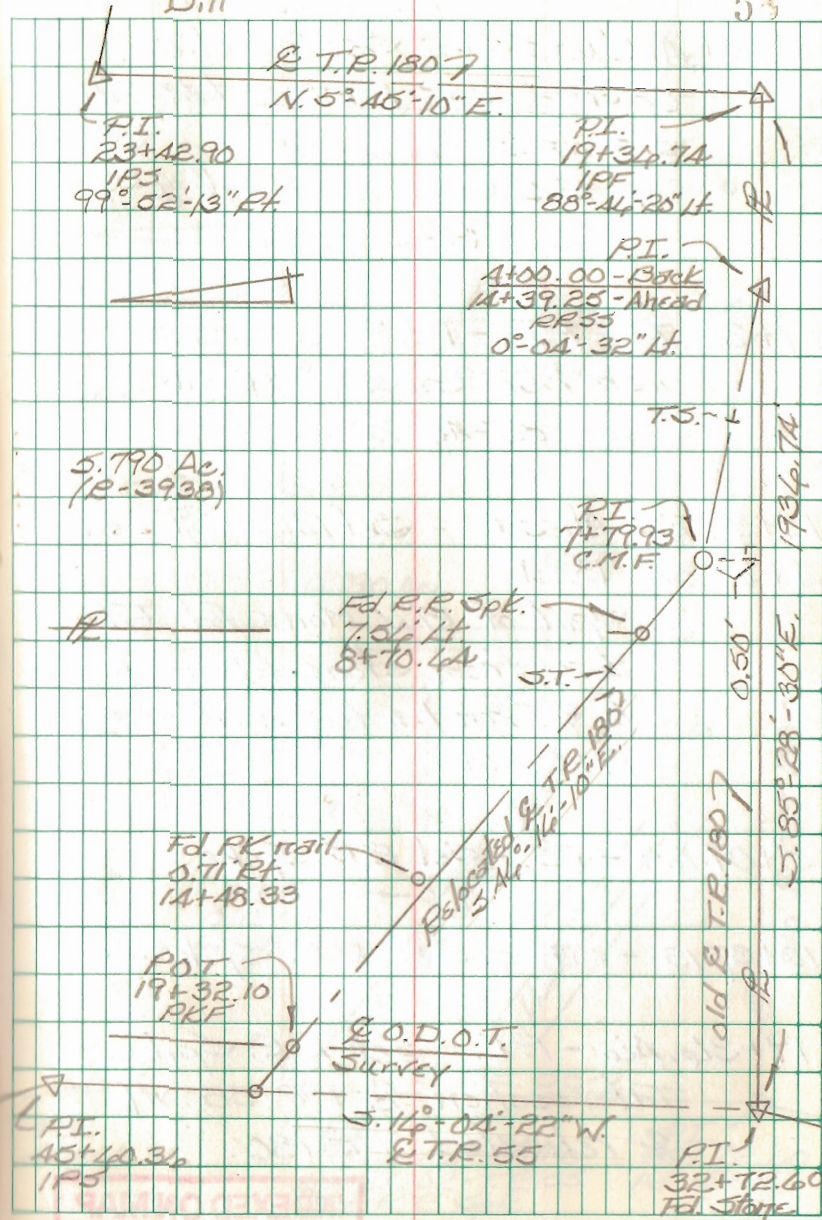 Bill
53
℄ T.R. 1807
N. 5°-45'-10" E.
P.I.
23+42.90
IPS
99°-02'-13" Rt.
P.I.
19+36.74
IPF
88°-46'-20" Lt.
P.I.
4+00.00-Back
14+39.25-Ahead
RRSS
0°-04'-32" Lt.
T.S.
1936.74'
5.790 Ac.
(R-3938)
P.I.
7+79.93
C.M.F.
Fd. R.R. Spk.
7.56' Lt
8+70.64
S.T.
0.50'
S. 85°-28'-30" E.
Relocated ℄ T.R. 1807
S. 46°-16'-10" E.
Old ℄ T.R. 1807
Fd. PK nail
0.71' Rt.
14+48.33
P.O.T.
19+32.10
PKF
℄ O.D.O.T.
Survey
S. 16°-04'-22" W.
℄ T.R. 55
P.I.
45+60.36
IPS
P.I.
32+72.60
Fd. Stone
INDEXED ON MAP